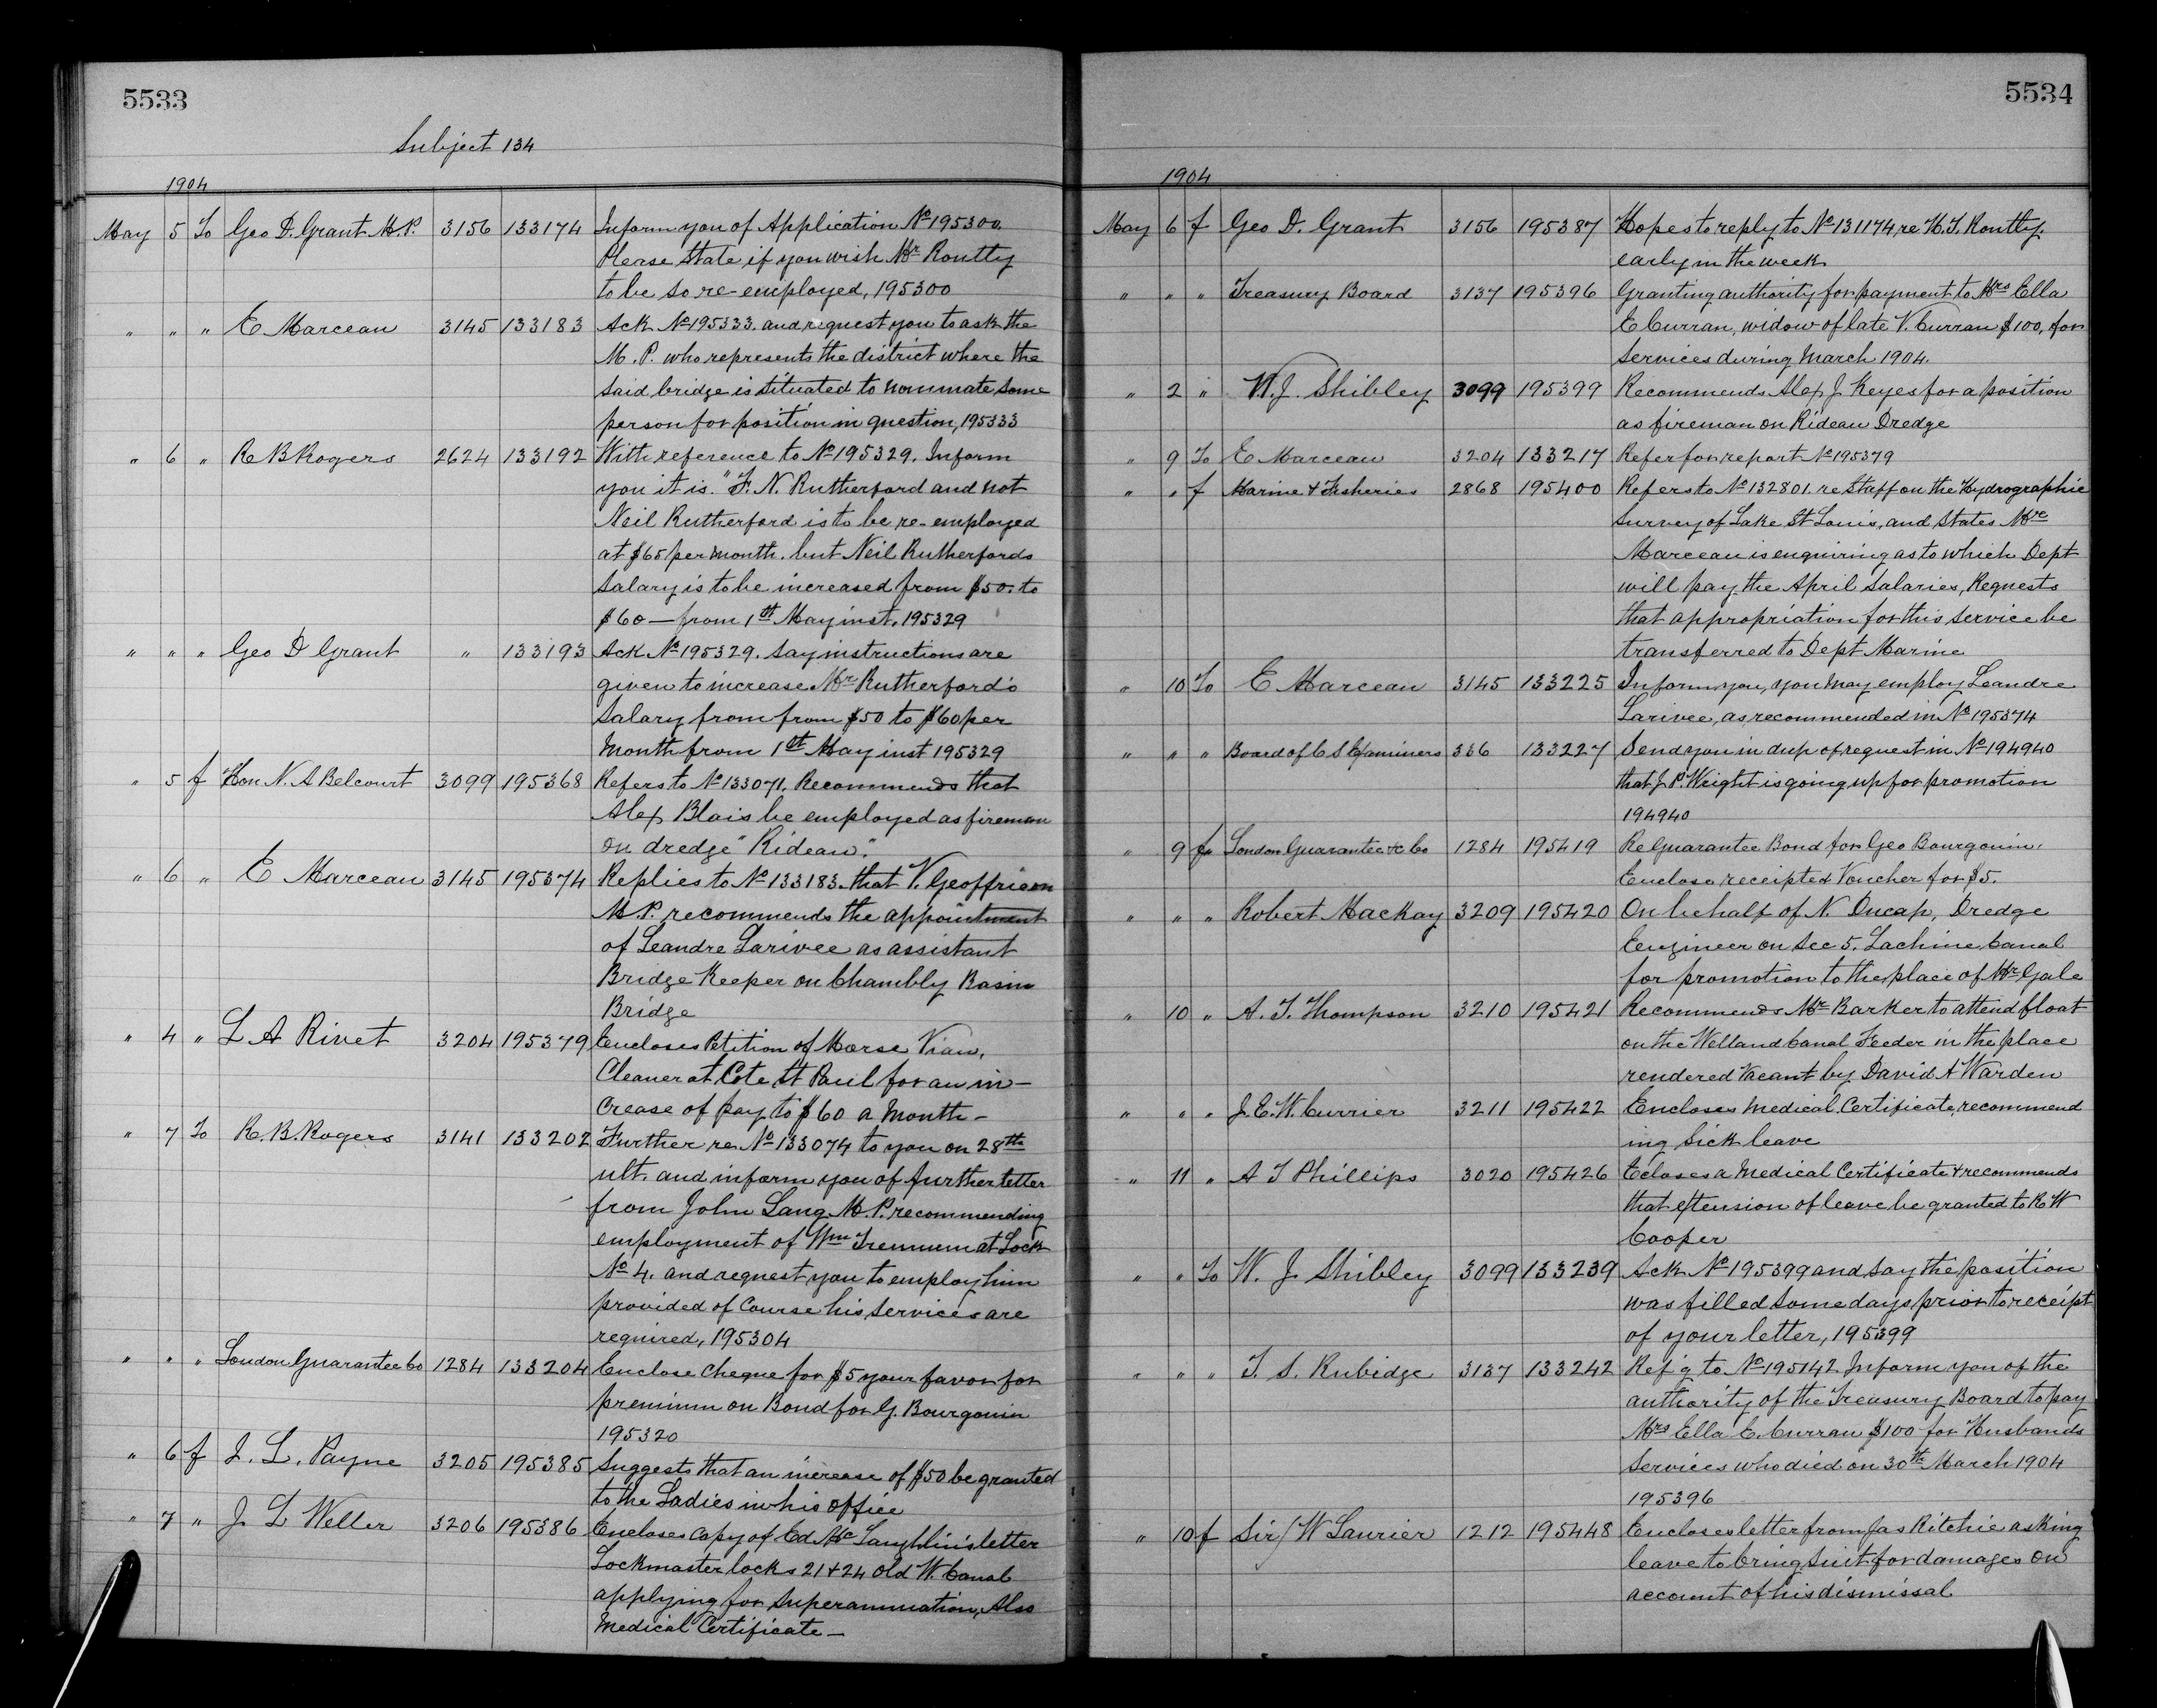 5533
Subject 134
1904
May 5 To Geo D. Grant M.P. 3156 133174 Inform you of Application No 195300.
Please State if you wish Mr Routtly
to be so re-employed, 195300
" " " E Marceau 3145 133183 Ack No 195333. and request you to ask the
M.P. who represents the district where the
said bridge is situated to nominate some
person for position in question, 195333
" 6 " R B Rogers 2624 133192 With reference to No 195329. Inform
you it is. "F. N. Rutherford and not
Neil Rutherford is to be re-employed
at $65 per month. but Neil Rutherfords
Salary is to be increased from $50. to
$60 — from 1st May inst. 195329
" " " Geo D Grant " 133193 Ack No 195329. Say instructions are
given to increase Mr Rutherford's
Salary from from $50 to $60 per
Month from 1st May inst 195329
" 5 f Hon N. A Belcourt 3099 195368 Refers to No 133071. Recommends that
Alex Blais be employed as fireman
on dredge "Rideau".
" 6 " E Marceau 3145 195374 Replies to No 133183. that V. Geoffrion
M.P. recommends the appointment
of Leandre Larivee as assistant
Bridge Keeper on Chambly Basin
Bridge
" 4 " L A Rivet 3204 195379 Encloses Petition of Morse Viau,
Cleaner at Cote St Paul for an in-
crease of pay to $60 a Month -
" 7 To R. B. Rogers 3141 133202 Further re No 133074 to you on 28th
ult. and inform you of further letter
from John Lang M.P. recommending
employment of Wm Tremeem at Lock
No 4. and request you to employ him
provided of Course his services are
required, 195304
" " " London Guarantee Co 1284 133204 Enclose Cheque for $5 your favor for
premium on Bond for G. Bourgouin
195320
" 6 f J. L. Payne 3205 195385 Suggests that an increase of $50 be granted
to the Ladies in his office
" 7 " J L Weller 3206 195386 Encloses copy of Ed McLaughlin's letter
Lockmaster locks 21 + 24 Old W. Canal
applying for Superannuation, Also
Medical Certificate —
5534
1904
May 6 f Geo D. Grant 3156 195387 Hopes to reply to No 131174, re H. J. Routtly.
early in the week
" " " Treasury Board 3137 195396 Granting authority for payment to Mrs Ella
E Curran, widow of late V. Curran $100, for
Services during March 1904.
" 2 " W. J. Shibley 3099 195399 Recommends Alex J Keyes for a position
as fireman on Rideau Dredge
" 9 To E Marceau 3204 133217 Refer for report No 195379
" " f Marine & Fisheries 2868 195400 Refers to No 132801. re Staff on the Hydrographic
Survey of Lake St Louis, and States Mr
Marceau is enquiring as to which Dept
will pay the April Salaries, Requests
that appropriation for this service be
transferred to Dept Marine
" 10 To E Marceau 3145 133225 Inform you, you may employ Leandre
Larivee, as recommended in No 195374
" " " Board of C S Examiners 336 133227 Send you in dup of request in No 194940
that J. P. Wright is going up for promotion
194940
" 9 fr London Guarantee &c Co 1284 195419 Re Guarantee Bond for Geo Bourgouin.
Enclose receipted Voucher for $5.
" " " Robert Mackay 3209 195420 On behalf of N. Ducap, Dredge
Engineer on Sec 5. Lachine Canal
for promotion to the place of Mr Gale
" 10 " A. T. Thompson 3210 195421 Recommends Mr Barker to attend float
on the Welland Canal Feeder in the place
rendered Vacant by David A Warden
" " " J. E. W. Currier 3211 195422 Encloses Medical Certificate, recommend
ing Sick leave
" 11 " A J Phillips 3020 195426 Ecloses a Medical Certificate & recommends
that extension of leave be granted to R W
Cooper
" " To W. J Shibley 3099 133239 Ack No 195399 and say the position
was filled some days prior to receipt
of your letter, 195399
" " " T. S. Rubidge 3137 133242 Ref'g to No 195142 Inform you of the
authority of the Treasury Board to pay
Mrs Ella E. Curran $100 for Husbands
Services who died on 30th March 1904
195396
" 10 f Sir W Laurier 1212 195448 Encloses letter from Jas Ritchie asking
leave to bring Suit for damages on
account of his dismissal